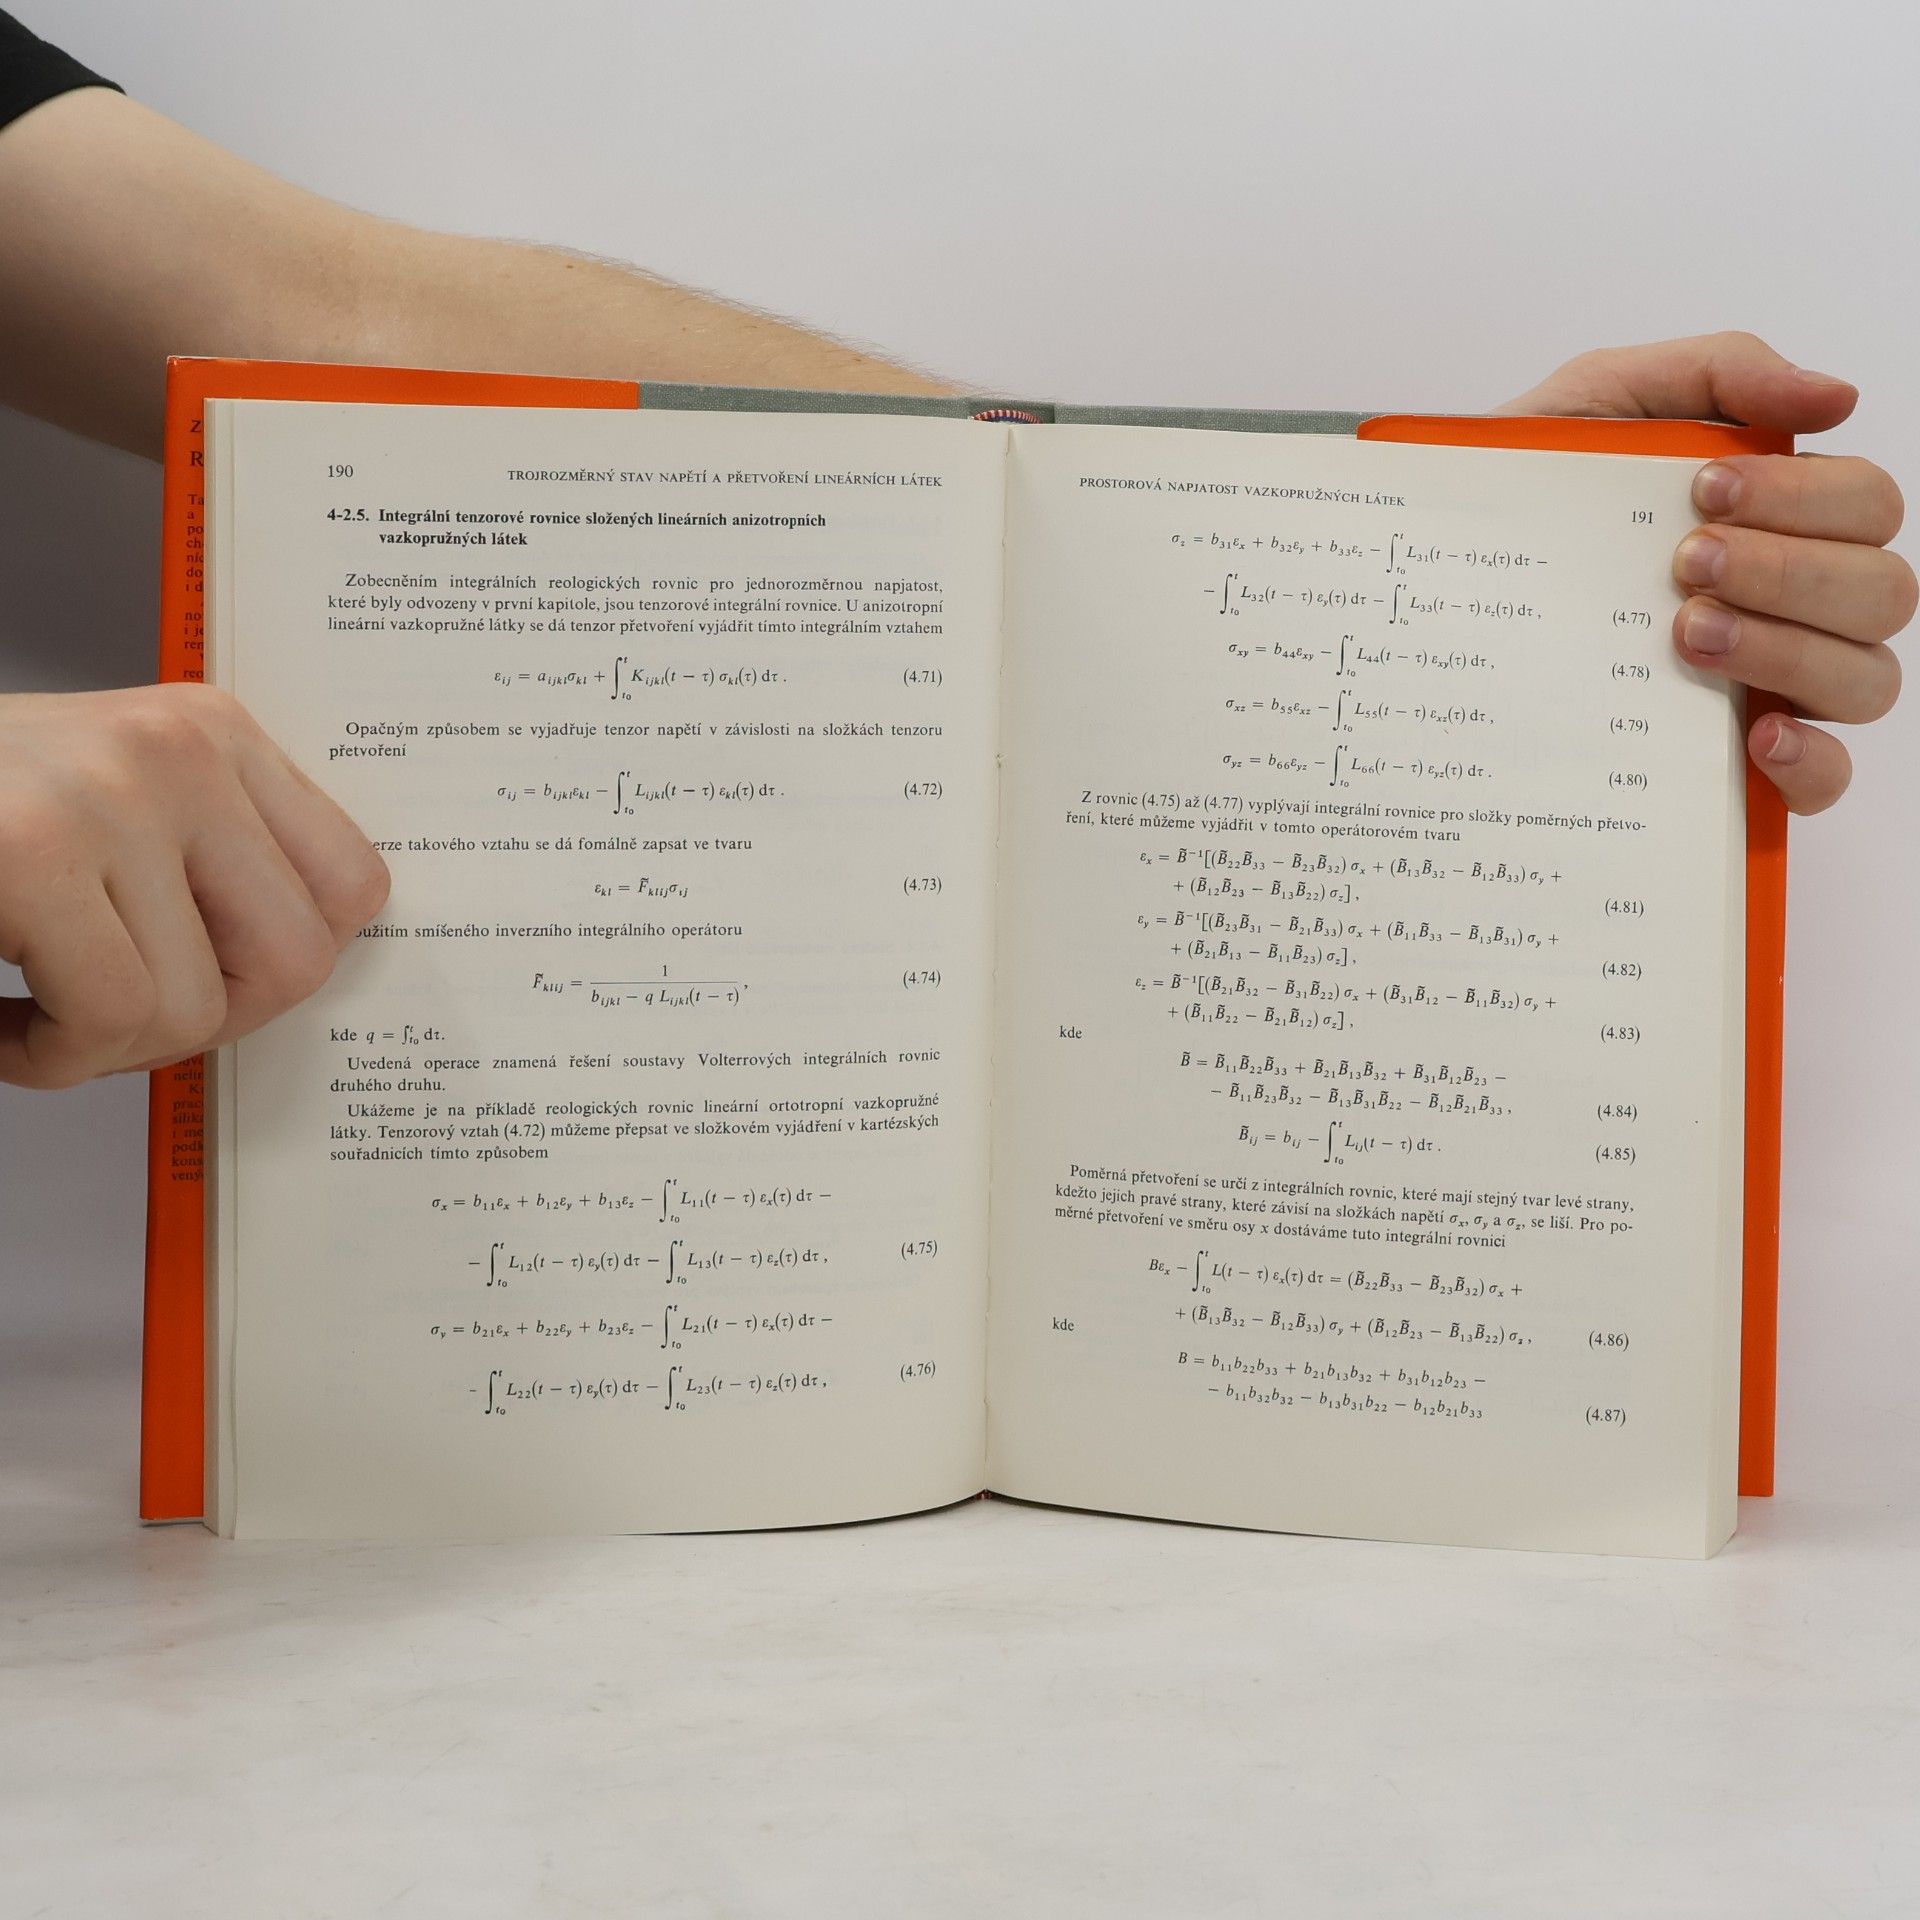 Z
R
Ta
a
po
ch
níc
do
i d
no
i je
ren
reo
nelin
K
prac
silik
i me
podk
kons
vený
190
TROJROZMĚRNÝ STAV NAPĚTÍ A PŘETVOŘENÍ LINEÁRNÍCH LÁTEK
4-2.5. Integrální tenzorové rovnice složených lineárních anizotropních
vazkopružných látek
Zobecněním integrálních reologických rovnic pro jednorozměrnou napjatost,
které byly odvozeny v první kapitole, jsou tenzorové integrální rovnice. U anizotropní
lineární vazkopružné látky se dá tenzor přetvoření vyjádřit tímto integrálním vztahem
ε_ij = a_ijkl σ_kl + ∫_{t_0}^{t} K_ijkl(t − τ) σ_kl(τ) dτ . (4.71)
Opačným způsobem se vyjadřuje tenzor napětí v závislosti na složkách tenzoru
přetvoření
σ_ij = b_ijkl ε_kl − ∫_{t_0}^{t} L_ijkl(t − τ) ε_kl(τ) dτ . (4.72)
erze takového vztahu se dá fomálně zapsat ve tvaru
ε_kl = F̃_klij σ_ij (4.73)
oužitím smíšeného inverzního integrálního operátoru
F̃_klij = 1 / (b_ijkl − q L_ijkl(t − τ)) , (4.74)
kde q = ∫_{t_0}^{t} dτ.
Uvedená operace znamená řešení soustavy Volterrových integrálních rovnic
druhého druhu.
Ukážeme je na příkladě reologických rovnic lineární ortotropní vazkopružné
látky. Tenzorový vztah (4.72) můžeme přepsat ve složkovém vyjádření v kartézských
souřadnicích tímto způsobem
σ_x = b_11 ε_x + b_12 ε_y + b_13 ε_z − ∫_{t_0}^{t} L_11(t − τ) ε_x(τ) dτ −
− ∫_{t_0}^{t} L_12(t − τ) ε_y(τ) dτ − ∫_{t_0}^{t} L_13(t − τ) ε_z(τ) dτ , (4.75)
σ_y = b_21 ε_x + b_22 ε_y + b_23 ε_z − ∫_{t_0}^{t} L_21(t − τ) ε_x(τ) dτ −
− ∫_{t_0}^{t} L_22(t − τ) ε_y(τ) dτ − ∫_{t_0}^{t} L_23(t − τ) ε_z(τ) dτ , (4.76)
PROSTOROVÁ NAPJATOST VAZKOPRUŽNÝCH LÁTEK
191
σ_z = b_31 ε_x + b_32 ε_y + b_33 ε_z − ∫_{t_0}^{t} L_31(t − τ) ε_x(τ) dτ −
− ∫_{t_0}^{t} L_32(t − τ) ε_y(τ) dτ − ∫_{t_0}^{t} L_33(t − τ) ε_z(τ) dτ , (4.77)
σ_xy = b_44 ε_xy − ∫_{t_0}^{t} L_44(t − τ) ε_xy(τ) dτ , (4.78)
σ_xz = b_55 ε_xz − ∫_{t_0}^{t} L_55(t − τ) ε_xz(τ) dτ , (4.79)
σ_yz = b_66 ε_yz − ∫_{t_0}^{t} L_66(t − τ) ε_yz(τ) dτ . (4.80)
Z rovnic (4.75) až (4.77) vyplývají integrální rovnice pro složky poměrných přetvo-
ření, které můžeme vyjádřit v tomto operátorovém tvaru
ε_x = B̃⁻¹[(B̃_22 B̃_33 − B̃_23 B̃_32) σ_x + (B̃_13 B̃_32 − B̃_12 B̃_33) σ_y +
+ (B̃_12 B̃_23 − B̃_13 B̃_22) σ_z] , (4.81)
ε_y = B̃⁻¹[(B̃_23 B̃_31 − B̃_21 B̃_33) σ_x + (B̃_11 B̃_33 − B̃_13 B̃_31) σ_y +
+ (B̃_21 B̃_13 − B̃_11 B̃_23) σ_z] , (4.82)
ε_z = B̃⁻¹[(B̃_21 B̃_32 − B̃_31 B̃_22) σ_x + (B̃_31 B̃_12 − B̃_11 B̃_32) σ_y +
+ (B̃_11 B̃_22 − B̃_21 B̃_12) σ_z] , (4.83)
kde
B̃ = B̃_11 B̃_22 B̃_33 + B̃_21 B̃_13 B̃_32 + B̃_31 B̃_12 B̃_23 −
− B̃_11 B̃_23 B̃_32 − B̃_13 B̃_31 B̃_22 − B̃_12 B̃_21 B̃_33 , (4.84)
B̃_ij = b_ij − ∫_{t_0}^{t} L_ij(t − τ) dτ . (4.85)
Poměrná přetvoření se určí z integrálních rovnic, které mají stejný tvar levé strany,
kdežto jejich pravé strany, které závisí na složkách napětí σ_x, σ_y a σ_z, se liší. Pro po-
měrné přetvoření ve směru osy x dostáváme tuto integrální rovnici
Bε_x − ∫_{t_0}^{t} L(t − τ) ε_x(τ) dτ = (B̃_22 B̃_33 − B̃_23 B̃_32) σ_x +
+ (B̃_13 B̃_32 − B̃_12 B̃_33) σ_y + (B̃_12 B̃_23 − B̃_13 B̃_22) σ_z , (4.86)
kde
B = b_11 b_22 b_33 + b_21 b_13 b_32 + b_31 b_12 b_23 −
− b_11 b_32 b_32 − b_13 b_31 b_22 − b_12 b_21 b_33 (4.87)